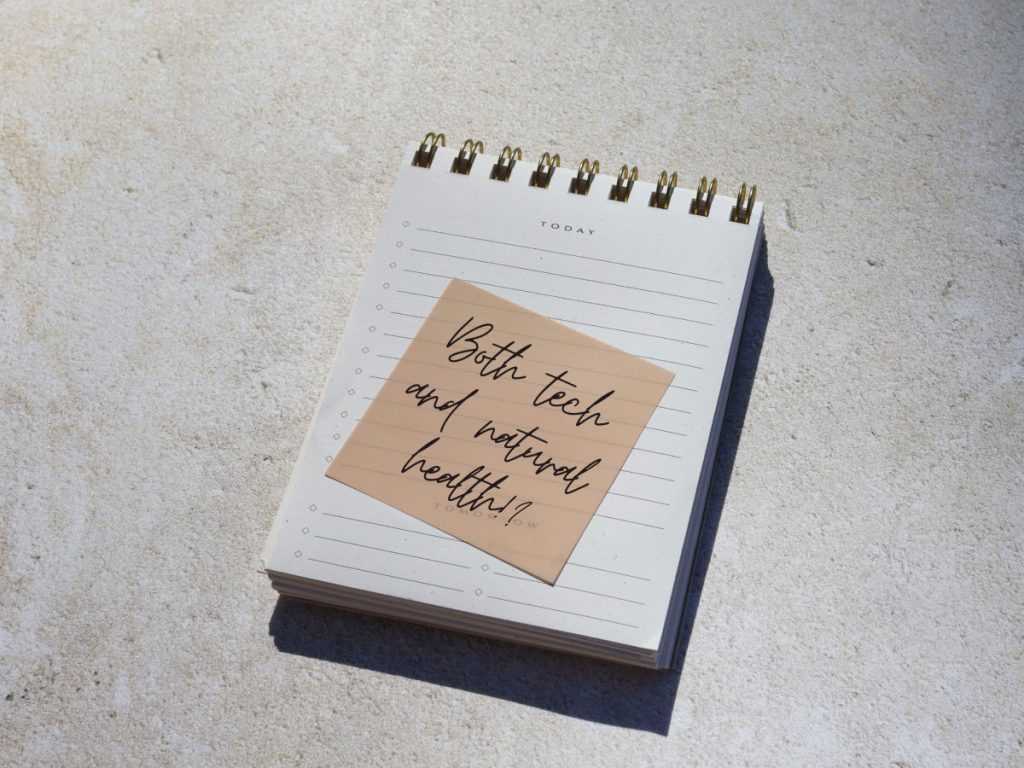 TODAY
Both tech
and natural
health!?
TOMORROW